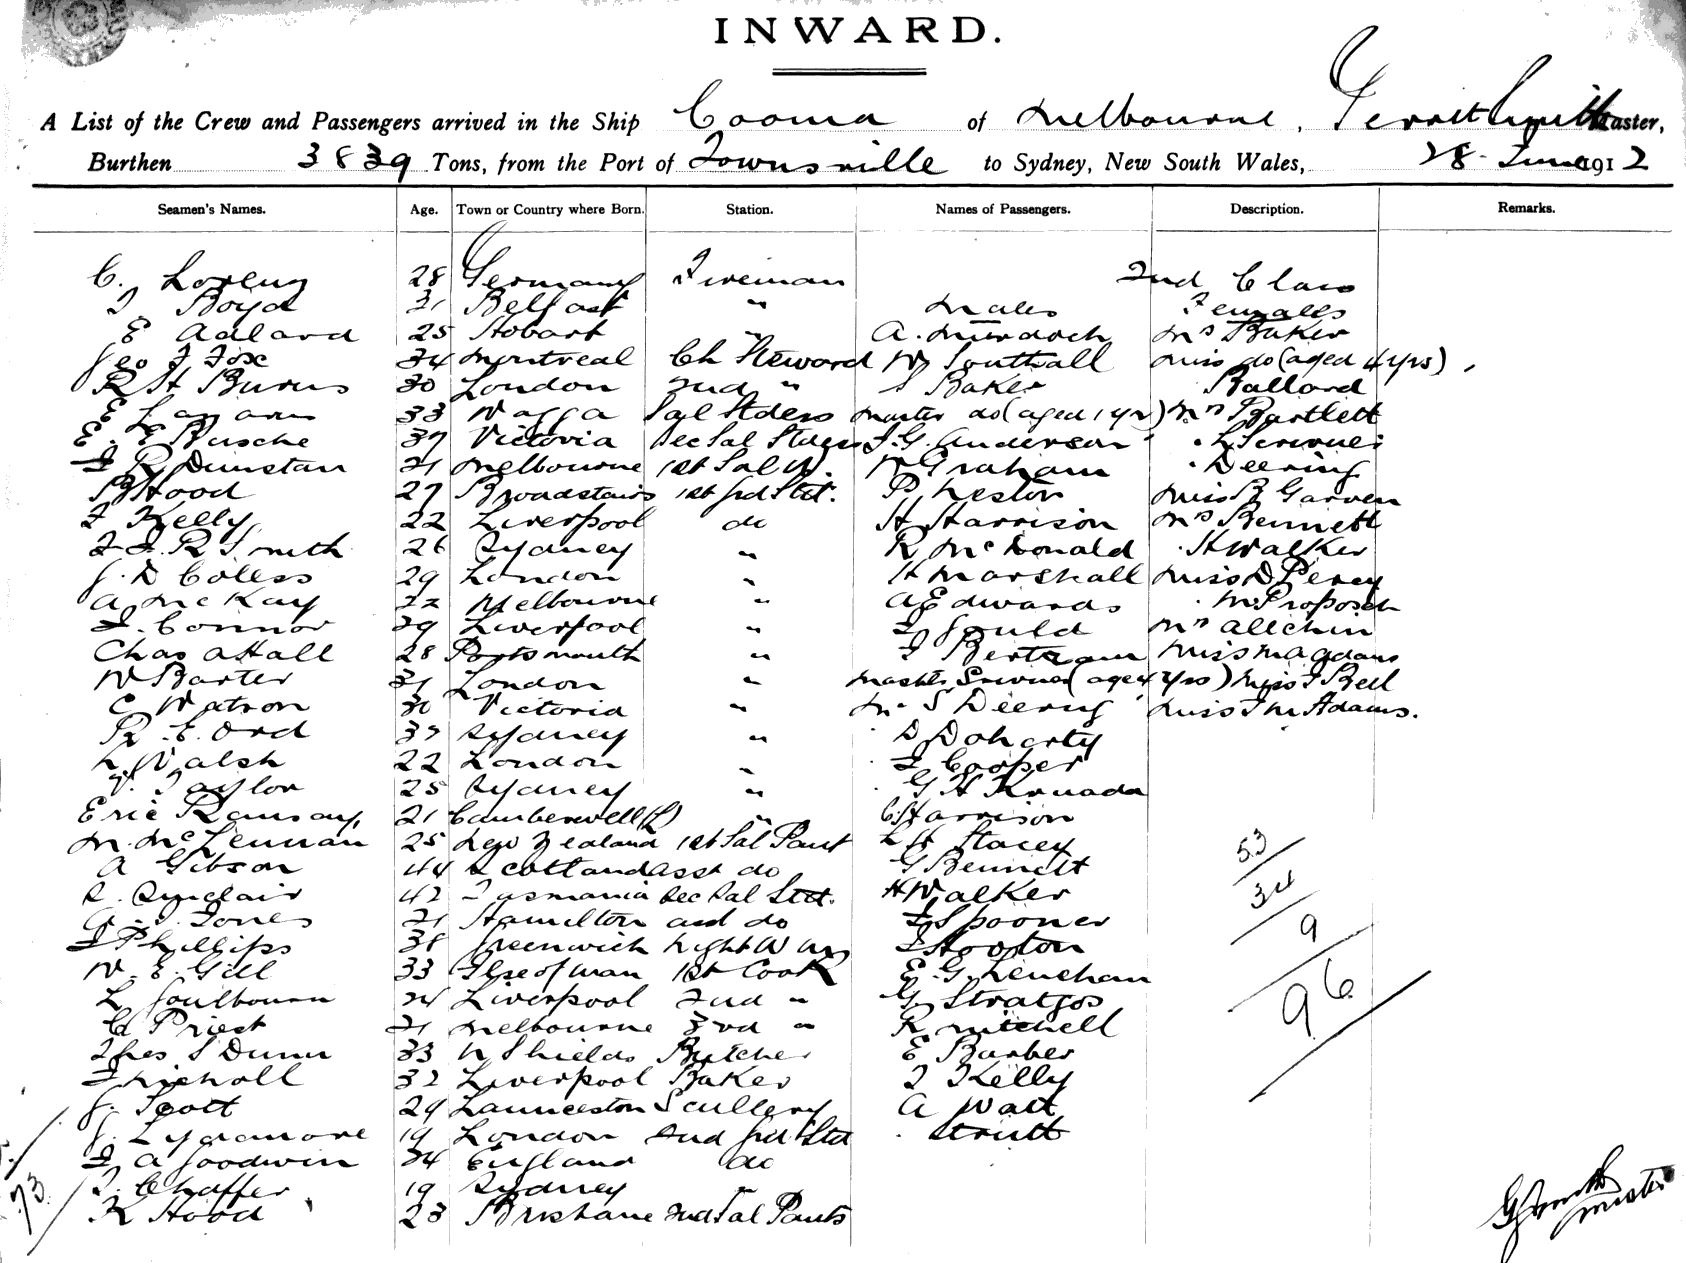 INWARD.
A List of the Crew and Passengers arrived in the Ship Cooma of Melbourne, Gerritt Smith Master,
Burthen 3839 Tons, from the Port of Townsville to Sydney, New South Wales, 28 June 1912
Seamen's Names. Age. Town or Country where Born. Station. Names of Passengers. Description. Remarks.
C. Lorenz 28 Germany Fireman 2nd Class
Boyd 31 Belfast " males Females
E Adlard 25 Hobart " A. Murdoch Mrs Baker
Geo F Fox 34 Montreal Ch Steward W Southall Miss do (aged 4 yrs)
R H Burns 30 London 2nd " Baker Ballard
E 33 Wagga Master do (aged 1 yr) Mrs Bartlett
E. E Busche 37 Victoria Sec Sal J. G. Anderson
R Dunstan 21 Melbourne 1st Sal W. W Graham " Deering
B Hood 27 Broadstairs 1st Std. P. Neston Miss B Garven
Kelly 22 Liverpool do H Harrison Mrs Bennett
R Smith 26 Sydney " R McDonald " H Walker
J. D Coless 29 London " H Marshall Miss D Percy
A McKay 22 Melbourne " A Edwards
J. Connor 29 Liverpool " J Gould Mrs Allchin
Chas A Hall 28 Portsmouth " J Bertram
W Barter 31 London " Master (aged 4 yrs) Miss J Bell
C Watson 30 Victoria " Mr S Deering Miss J M Adams.
R. E. Ord 37 Sydney " D Doherty
Walsh 22 London " J Cooper
Taylor 25 Sydney " G H
Eric Ramsay 21 Camberwell (L) " C. Harrison
M. McLennan 25 New Zealand 1st Sal Pant L H Stacey
A Gibson 44 Scotland asst do G Bennett 53
Synclair 42 Tasmania Sec Sal Std. H Walker 34
Jones 21 Hamilton and do J Spooner
J Phillips 38 Greenwich Night W Hooton 9
W. E. Gill 33 Isle of Man 1st Cook E. G. Lenehan
L Goulbourn 24 Liverpool 2nd " G. Stratgos 96
C Priest 21 Melbourne 3rd " R Mitchell
Thos S Dunn 33 N Shields Butcher E Barber
J Nicholl 32 Liverpool Baker J Kelly
J. Scott 29 Launceston Scullery A Watt
J. 19 London 2nd Std . Strutt
J A Goodwin 24 England do
Chaffer 19 Sydney "
73 K Hood 23 Brisbane 2nd Sal Pants
G Smith
Master